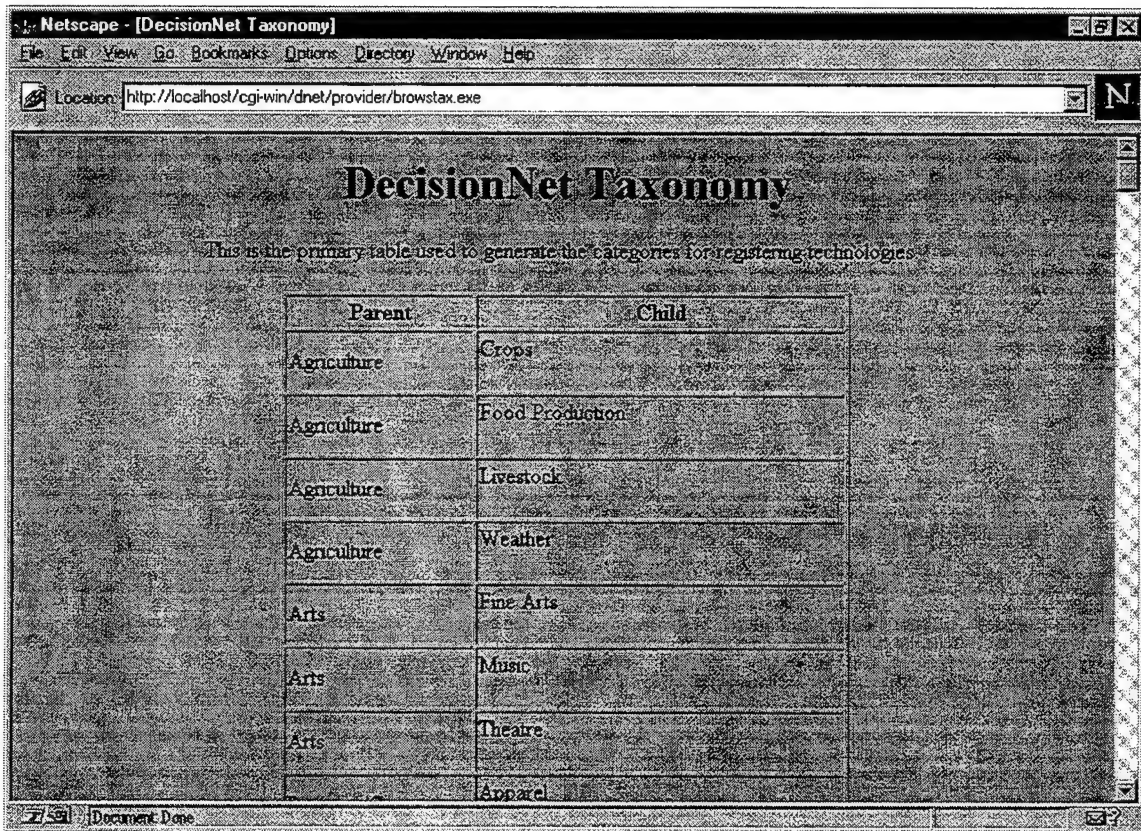 Netscape - [DecisionNet Taxonomy]
File Edit View Go Bookmarks Options Directory Window Help
Location: http://localhost/cgi-win/dnet/provider/browstax.exe
N
DecisionNet Taxonomy
This is the primary table used to generate the categories for registering technologies
Parent Child
Agriculture Crops
Agriculture Food Production
Agriculture Livestock
Agriculture Weather
Arts Fine Arts
Arts Music
Arts Theatre
Apparel
Document: Done